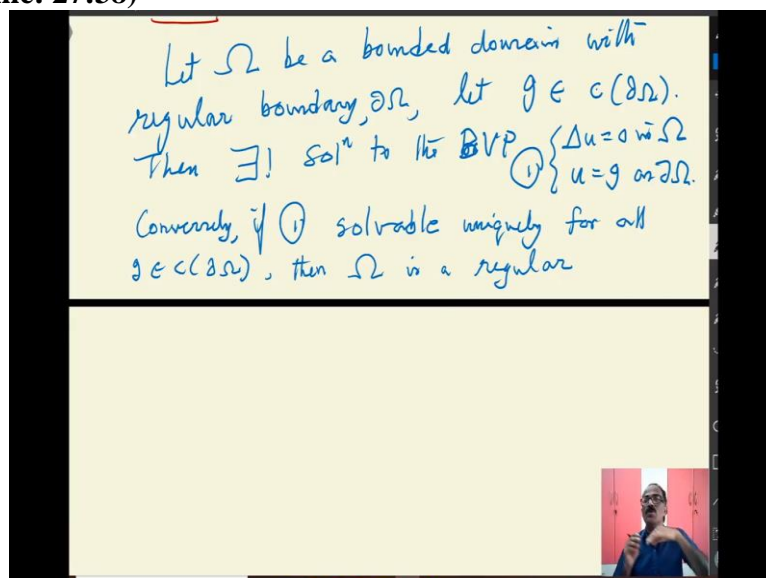 Let Ω be a bounded domain with
regular boundary, ∂Ω, let g ∈ C(∂Ω).
Then ∃! solⁿ to the BVP ① { Δu = 0 in Ω
u = g on ∂Ω.
Conversely, if ① solvable uniquely for all
g ∈ C(∂Ω), then Ω is a regular